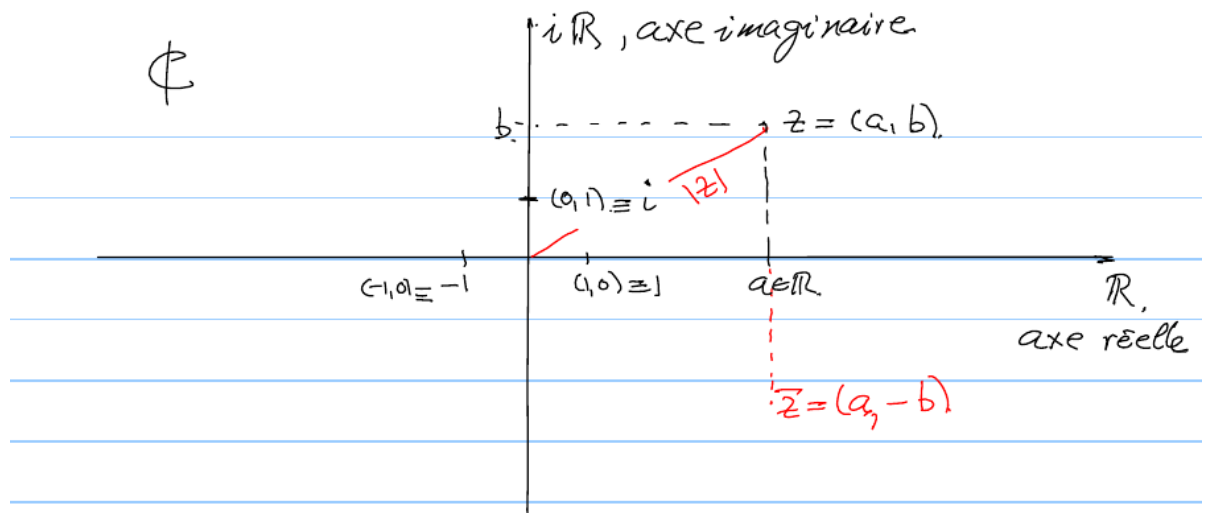 iℝ, axe imaginaire
ℂ
b
z = (a, b).
|z|
(0,1) ≡ i
(-1,0) ≡ -1
(1,0) ≡ 1
a∈ℝ.
ℝ,
axe réelle
z̅ = (a, -b)